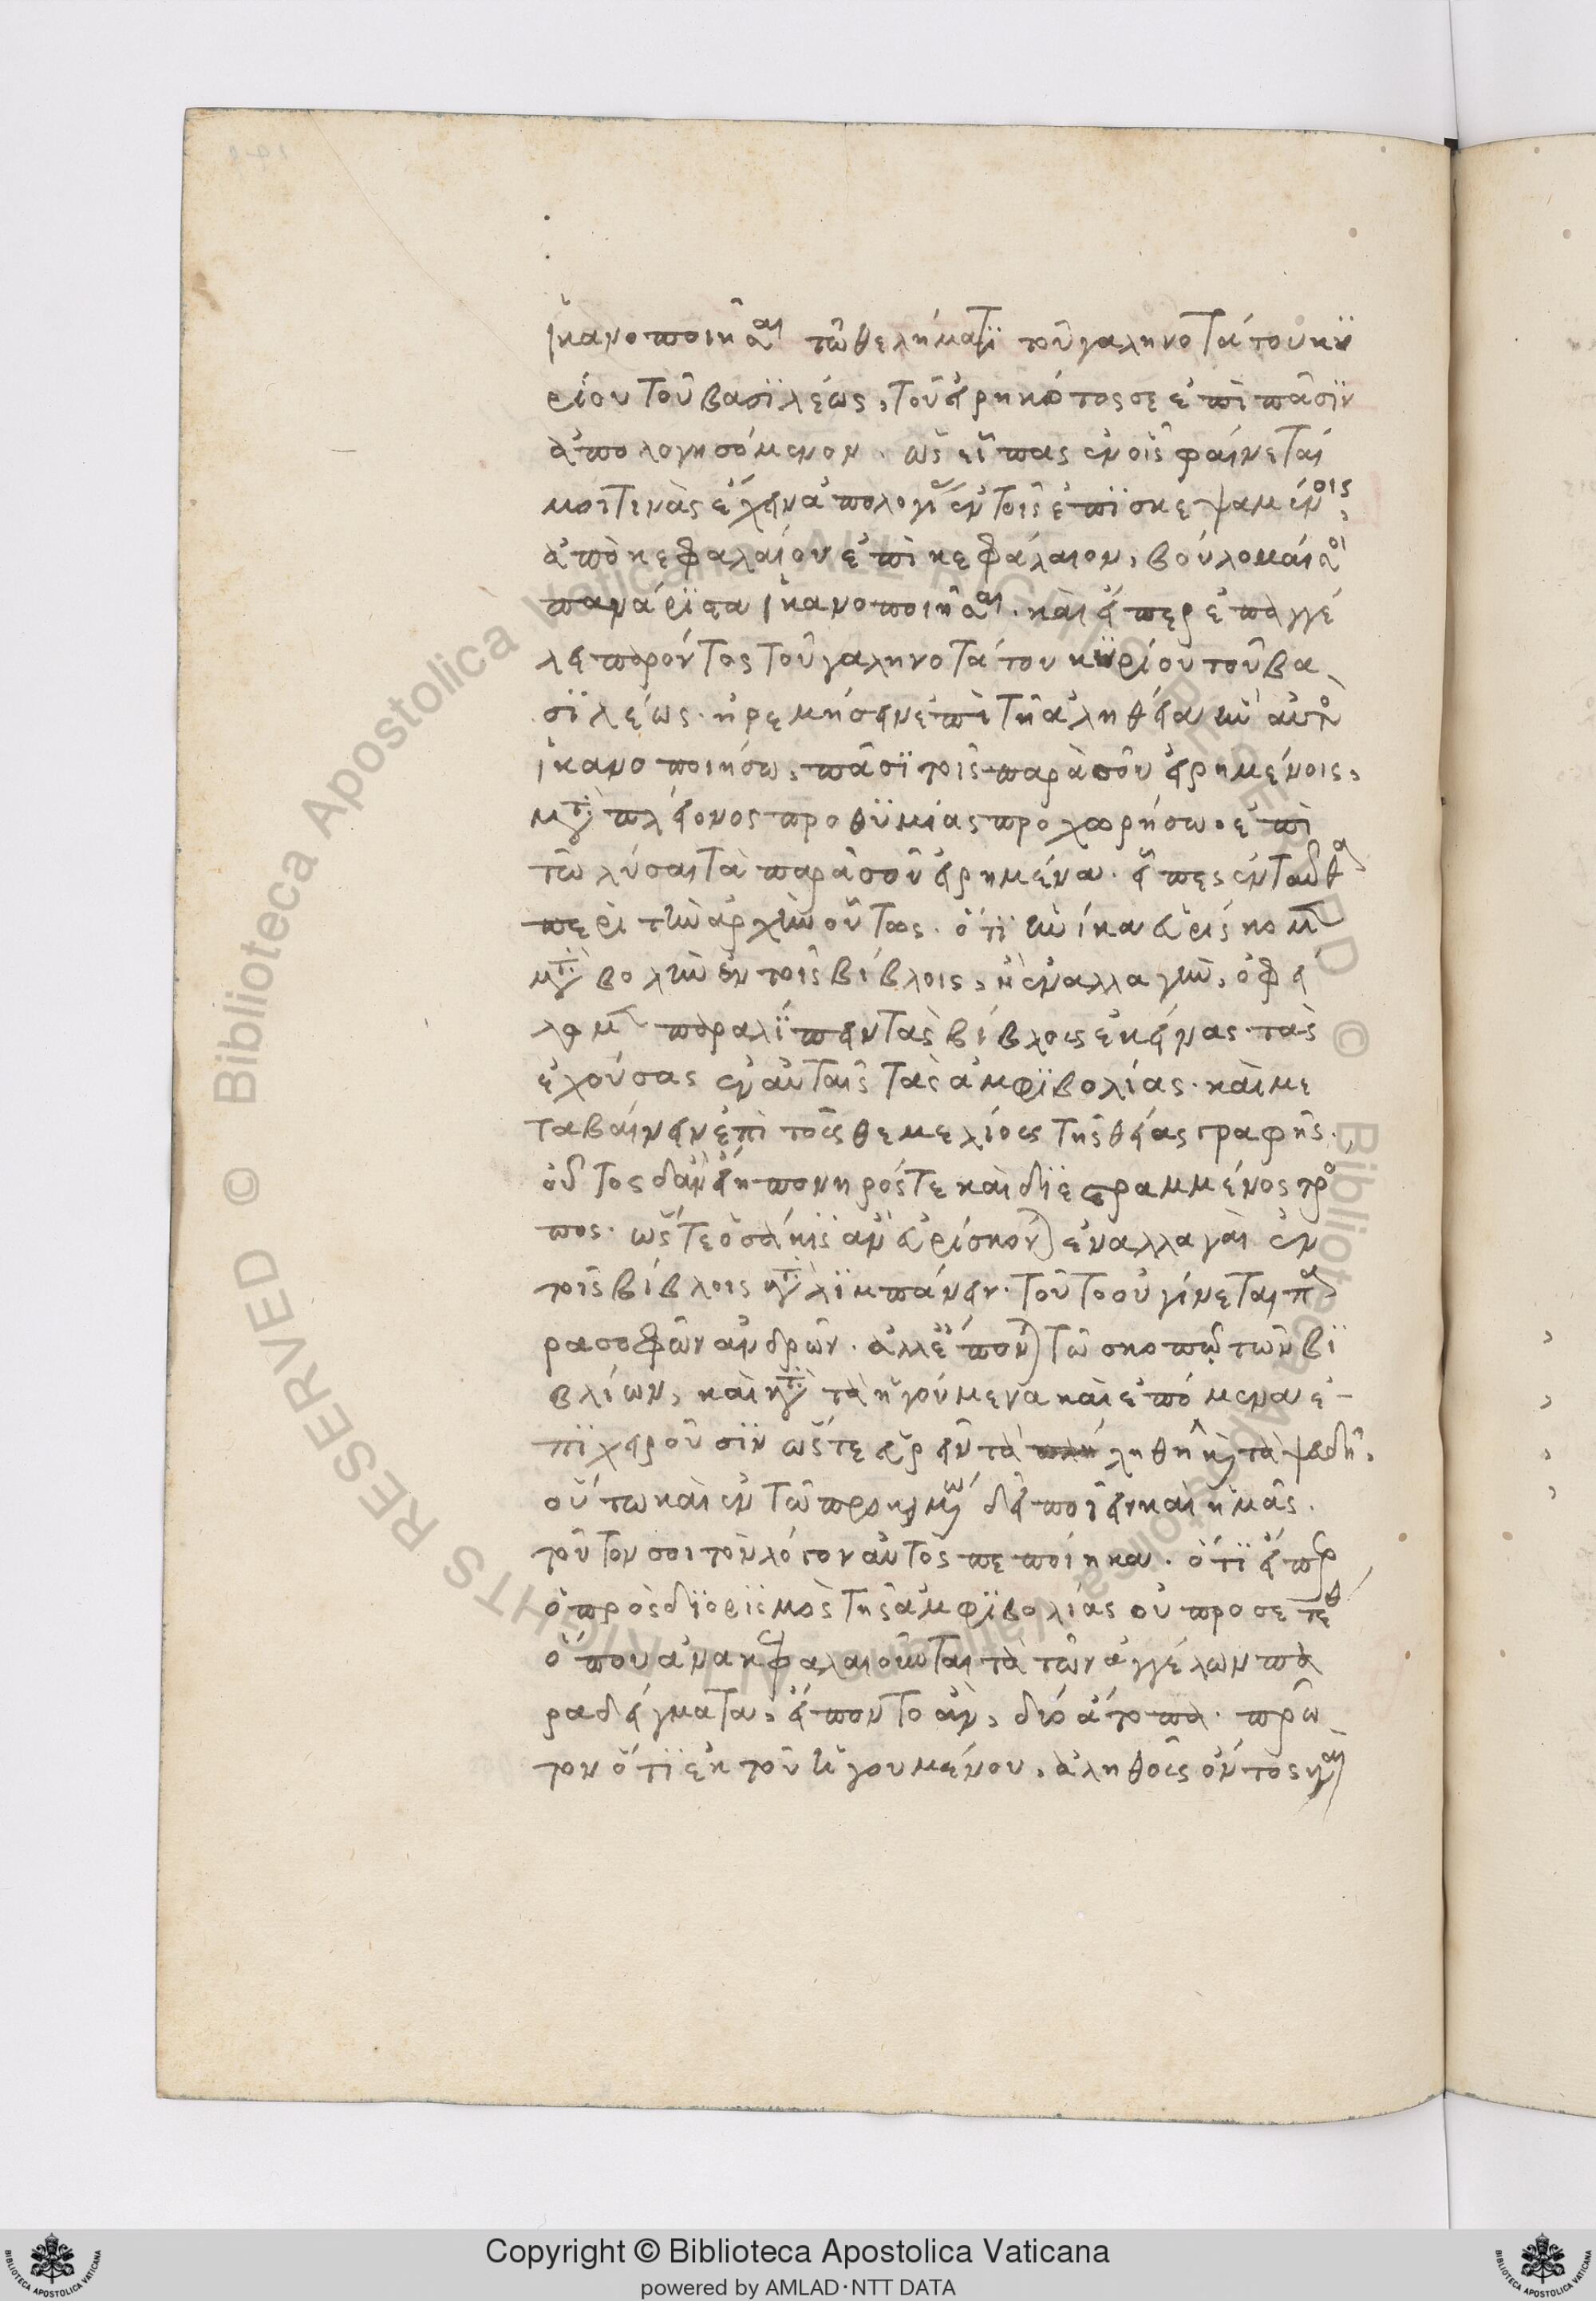 ἱκανοποιῆσαι τῶ θελήματϊ τοῦ γαληνοτάτου κυ
ρίου τοῦ βασϊλέως, τοῦ εἰρηκότος σε ἐπὶ πᾶσϊν
ἀπολογησόμενον. ὡς εἶπας ἐν οἷς φαίνεταί
μοι τινὰς ἔχειν ἀπολογίαν ἐν τοῖς ἐπϊσκεψαμένοις,
ἀπὸ κεφαλαίου ἐπὶ κεφάλαιον, βούλομαί σοι
πανάρϊστα ἱκανοποιῆσαι. καὶ εἴπερ ἐπαγγέ
λει παρόντος τοῦ γαληνοτάτου κυρίου τοῦ βα
σϊλέως. ἠρεμήσειν ἐπὶ τῆ ἀληθεία ἣν αὐτὸς
ἱκανοποιήσω, πᾶσϊ τοῖς παρὰ σοῦ εἰρημένοις,
μετὰ πλείονος προθϋμίας προχωρήσω. ἐπὶ
τῶ λύσαι τὰ παρὰ σοῦ εἰρημένα. εἶπες ἐνταῦθα
περὶ τὴν ἀρχὴν οὕτως. ὅτϊ ἡνίκα εὑρίσκομεν
μεταβολὴν ἐν τοῖς βίβλοις, ἢ ἐναλλαγὴν, ὀφεί
λομεν παραλϊπεῖν τὰς βίβλους ἐκείνας. τὰς
ἐχούσας ἐν αὐταῖς τὰς ἀμφϊβολίας. καὶ με
ταβαίνειν ἐπὶ τοὺς θεμελίους τῆς θείας γραφῆς.
οὗτος δἂν εἴη πονηρός τε καὶ δϊεστραμμένος τρό
πος. ὥς τε ὁσάκις ἂν εὑρίσκονται ἐναλλαγαὶ ἐν
τοῖς βίβλοις καταλϊμπάνειν. τοῦτο οὐ γίνεται πα
ρα σοφῶν ἀνδρῶν. ἀλλ' ἕπονται τῶ σκοπῶ τῶν βϊ
βλίων, καὶ κατὰ τὰ ἡγούμενα καὶ ἑπόμενα ἐ-
πϊχειροῦσϊν ὥς τε εὑρεῖν τὰ ληθῆ καὶ τὰ ψευδῆ.
οὕτω καὶ ἐν τῶ προκειμένω δεῖ ποιεῖν καὶ ἡμᾶς.
τοῦτον σοι τὸν λόγον αὐτὸς πεποίηκα. ὅτϊ εἴπερ
ὁ προσδϊορϊσμὸς τῆς ἀμφϊβολίας οὐ προσετέθη
ὅπου ἀνακεφαλαιοῦνται τὰ τῶν ἀγγέλων πα
ραδείγματα, εἵποντο ἂν, δύο ἄτοπα. πρῶ
τον ὅτϊ ἐκ τοῦ ἡγουμένου, ἀληθοῦς ὄντος